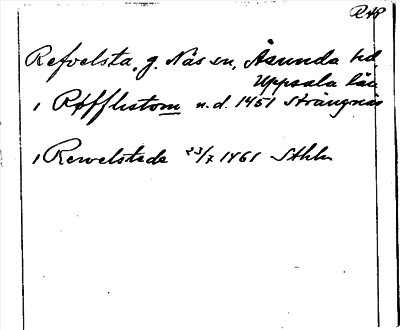 R48
Refvelsta, g. Näs sn, Åsunda hd,
Uppsala län
1 Røfflistom n.d. 1451 Strängnäs
1 Rewelstede 23/7 1461 Sthlm